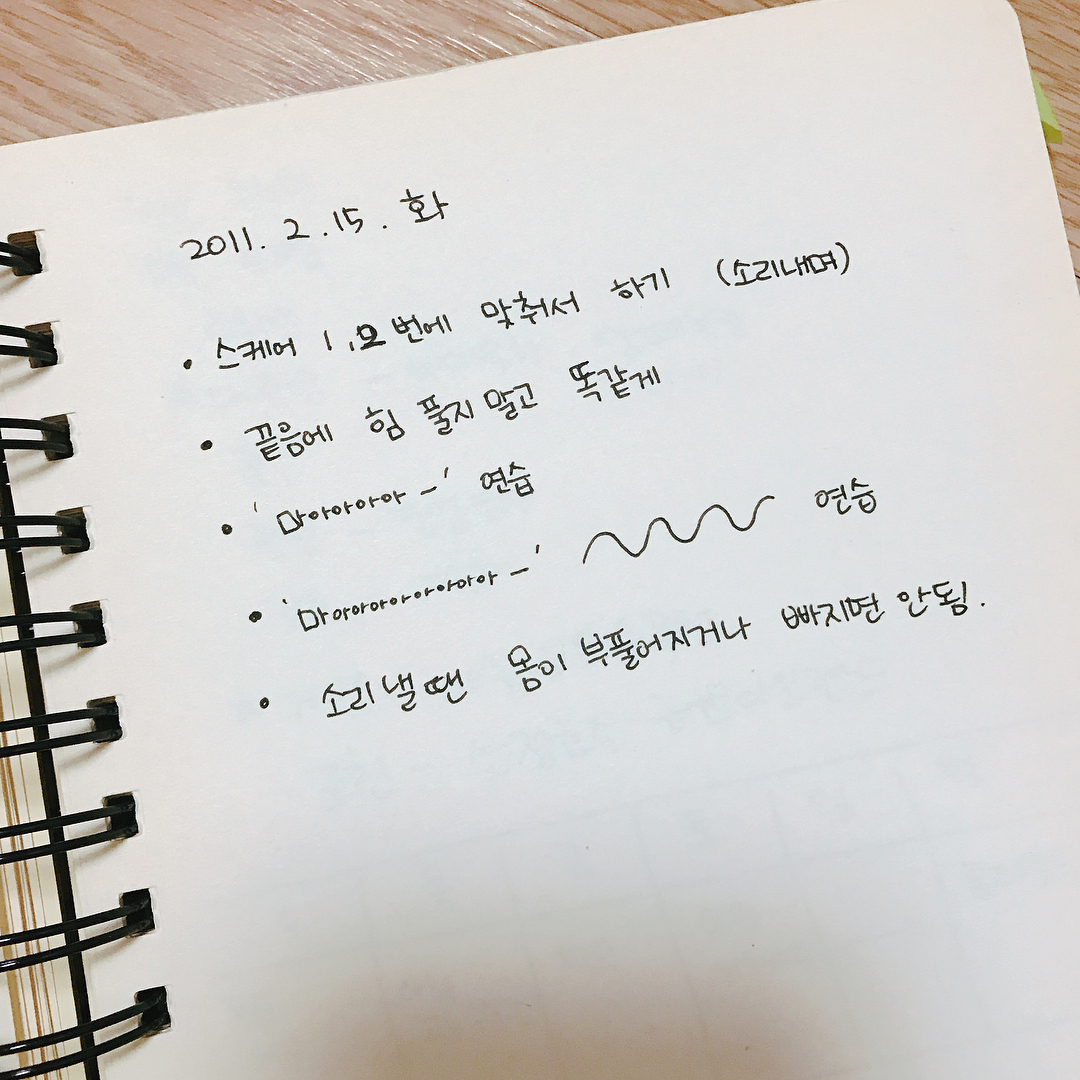 2011. 2. 15. 화
• 스케어 1, 2번에 맞춰서 하기 (소리내며)
• 끝음에 힘 풀지 말고 똑같게
• '마아아아아아 –' 연습
• '마아아아아아아아아아 –' 연습
• 소리 낼 땐 몸이 부풀어지거나 빠지면 안됨.